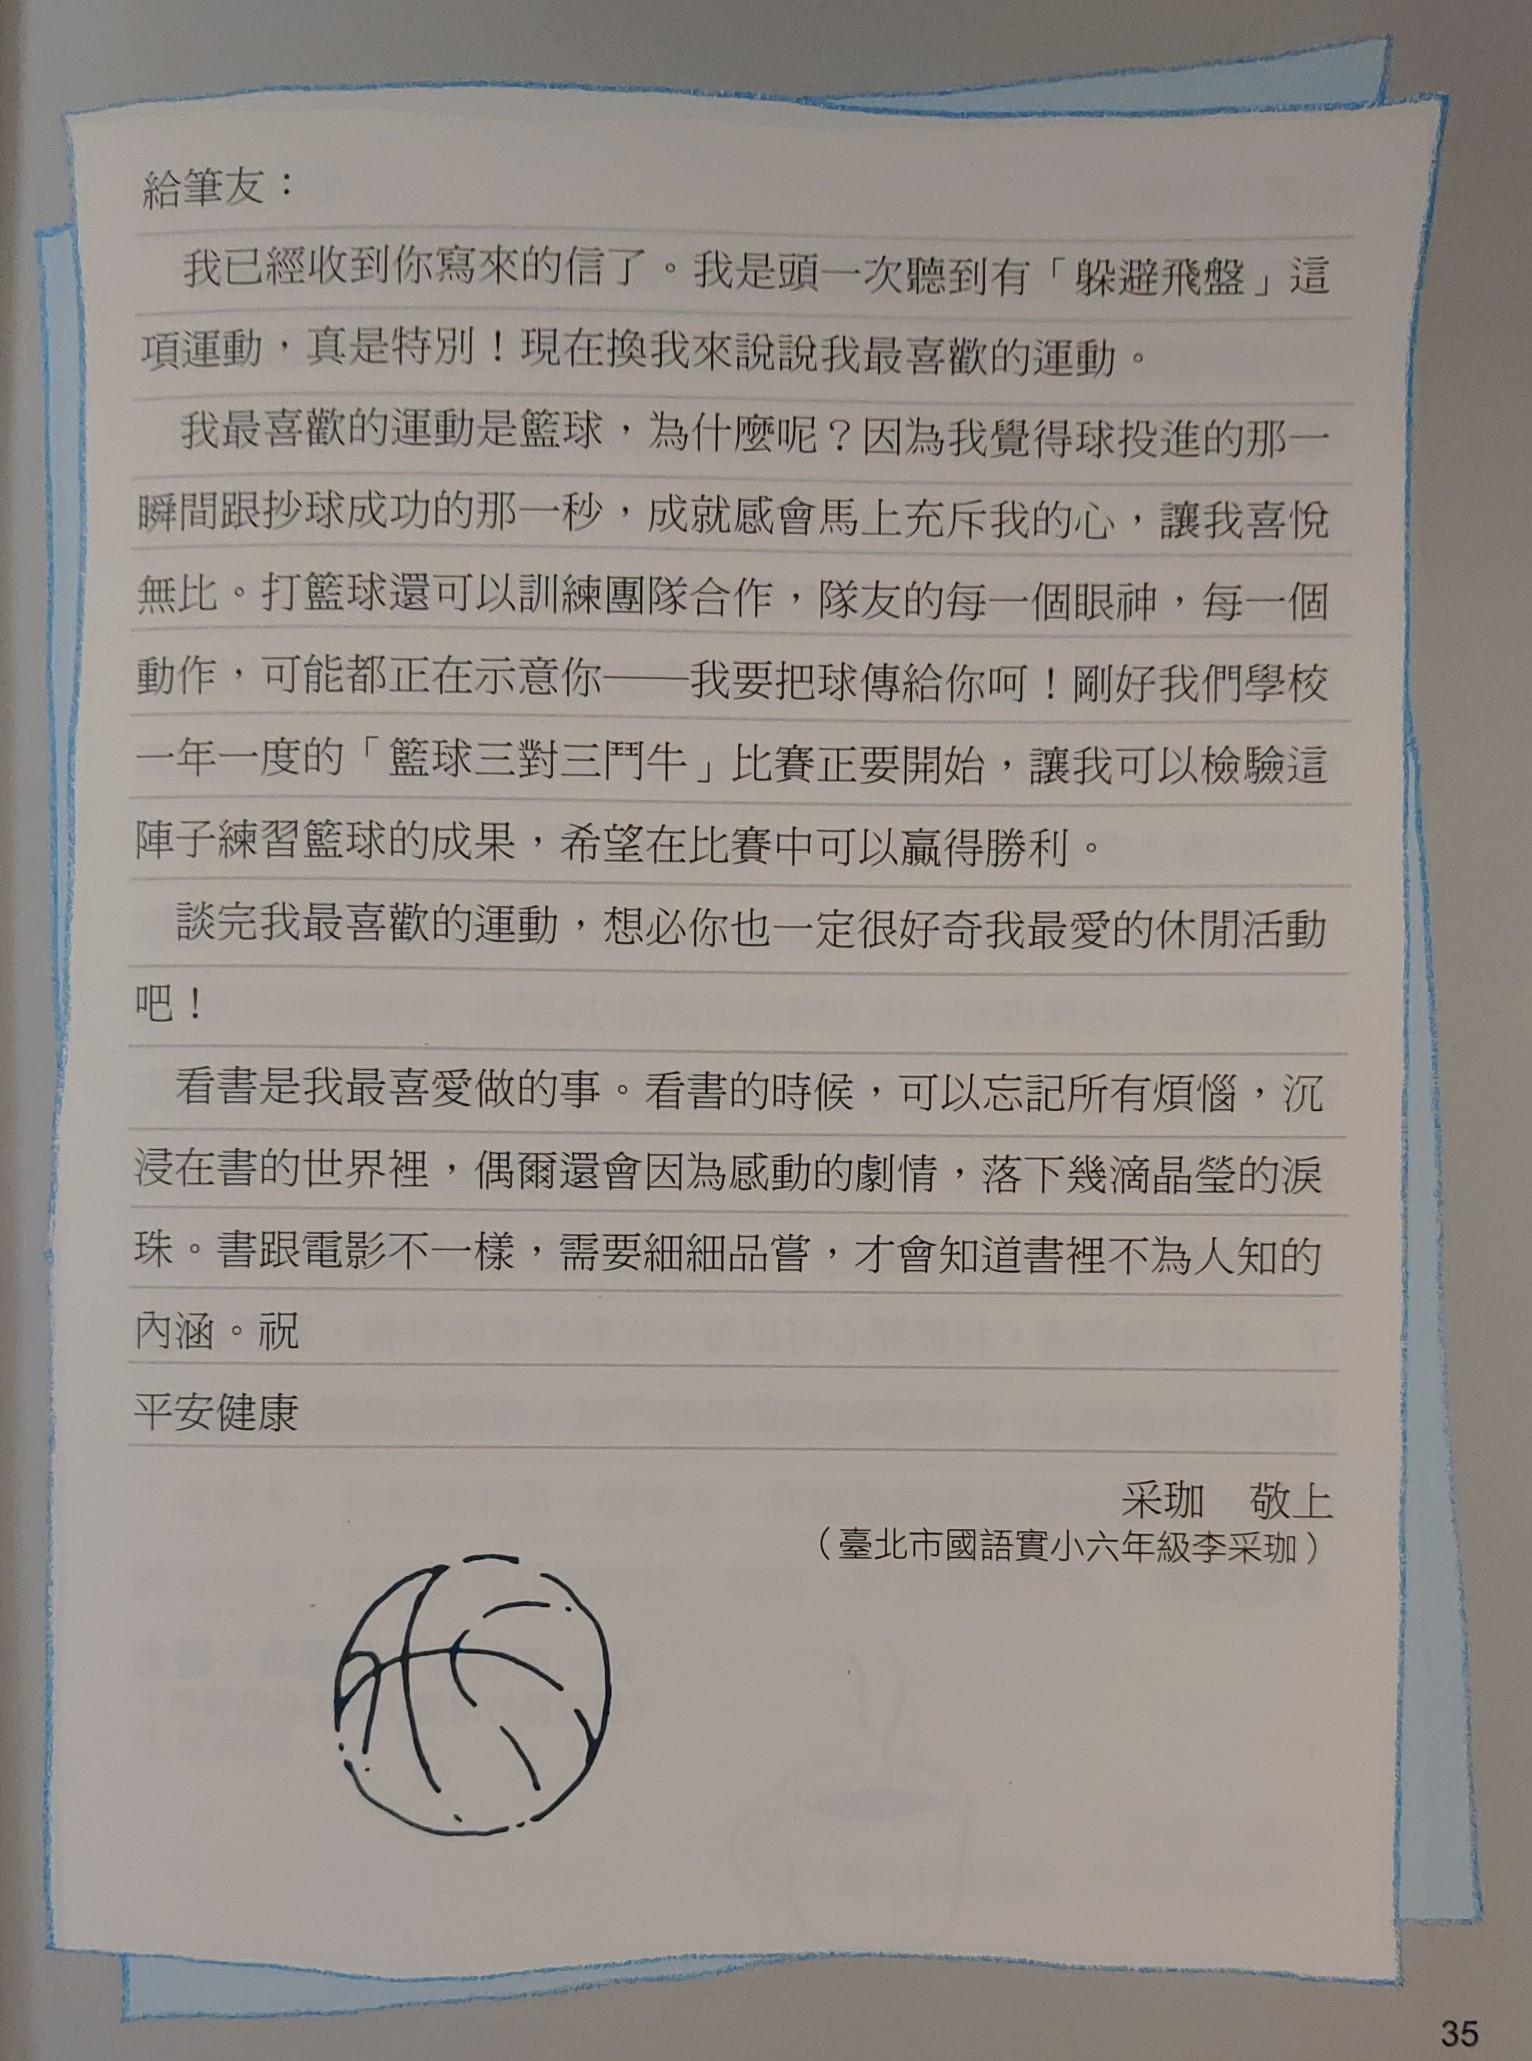 給筆友：
我已經收到你寫來的信了。我是頭一次聽到有「躲避飛盤」這
項運動，真是特別！現在換我來說說我最喜歡的運動。
我最喜歡的運動是籃球，為什麼呢？因為我覺得球投進的那一
瞬間跟抄球成功的那一秒，成就感會馬上充斥我的心，讓我喜悅
無比。打籃球還可以訓練團隊合作，隊友的每一個眼神，每一個
動作，可能都正在示意你——我要把球傳給你呵！剛好我們學校
一年一度的「籃球三對三鬥牛」比賽正要開始，讓我可以檢驗這
陣子練習籃球的成果，希望在比賽中可以贏得勝利。
談完我最喜歡的運動，想必你也一定很好奇我最愛的休閒活動
吧！
看書是我最喜愛做的事。看書的時候，可以忘記所有煩惱，沉
浸在書的世界裡，偶爾還會因為感動的劇情，落下幾滴晶瑩的淚
珠。書跟電影不一樣，需要細細品嘗，才會知道書裡不為人知的
內涵。祝
平安健康
采珈　敬上
（臺北市國語實小六年級李采珈）
35